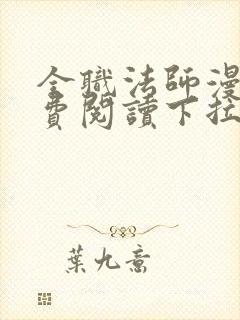 全職法師漫
費閱讀下拉
葉九意